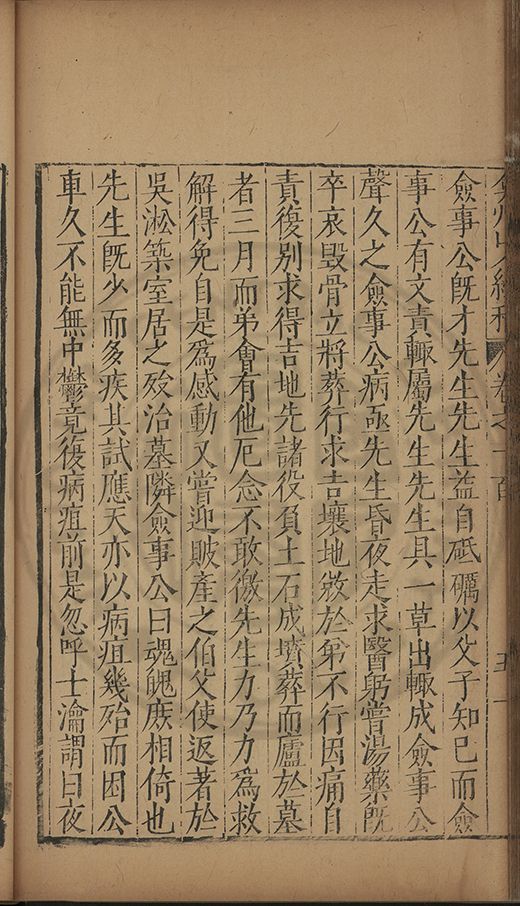 弇州山人續稿 卷之一百 五
僉事公旣才先生先生益自砥礪以父子知已而僉
事公有文責輒屬先生先生具一草出輒成僉事公
聲久之僉事公病亟先生昏夜走求醫躬嘗湯藥旣
卒哀毀骨立將葬行求吉壤地敓於弟不行因痛自
責復別求得吉地先諸役負土石成墳葬而廬於墓
者三月而弟會有他厄念不敢徼先生力乃力爲救
解得免自是爲感動又嘗迎貱產之伯父使返著於
吳淞築室居之歿治墓隣僉事公曰魂魄庶相倚也
先生旣少而多疾其試應天亦以病疽幾殆而困公
車久不能無中鬱竟復病疽前是忽呼士瀹謂曰夜